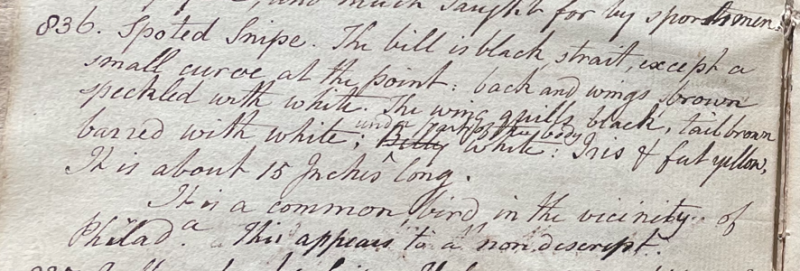 and much saught for by sportsmen.
836. Spoted Snipe. The bill is black, strait, except a
small curve, at the point: back and wings brown
speckled with white. The wing quills black, tail brown
barred with white; under part of the body
Belly white: Iris & feet yellow,
It is about 15 Inches long.
It is a common bird in the vicinity of
Philad.a This appears to a nondescript.